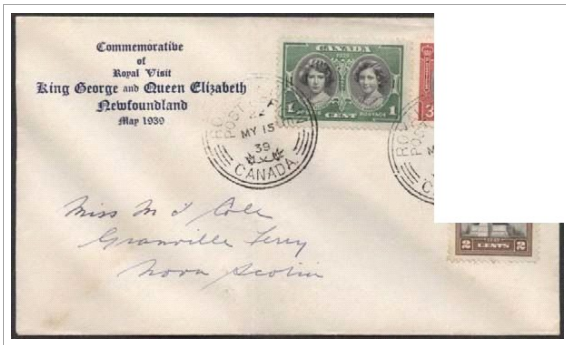 Commemorative
of
Royal Visit
King George and Queen Elizabeth
Newfoundland
May 1939
CANADA
1 CENT POSTAGE 1
3
POST
MY 15
39
CANADA
2 CENTS 2
Miss M J Cole
Granville Ferry
Nova Scotia